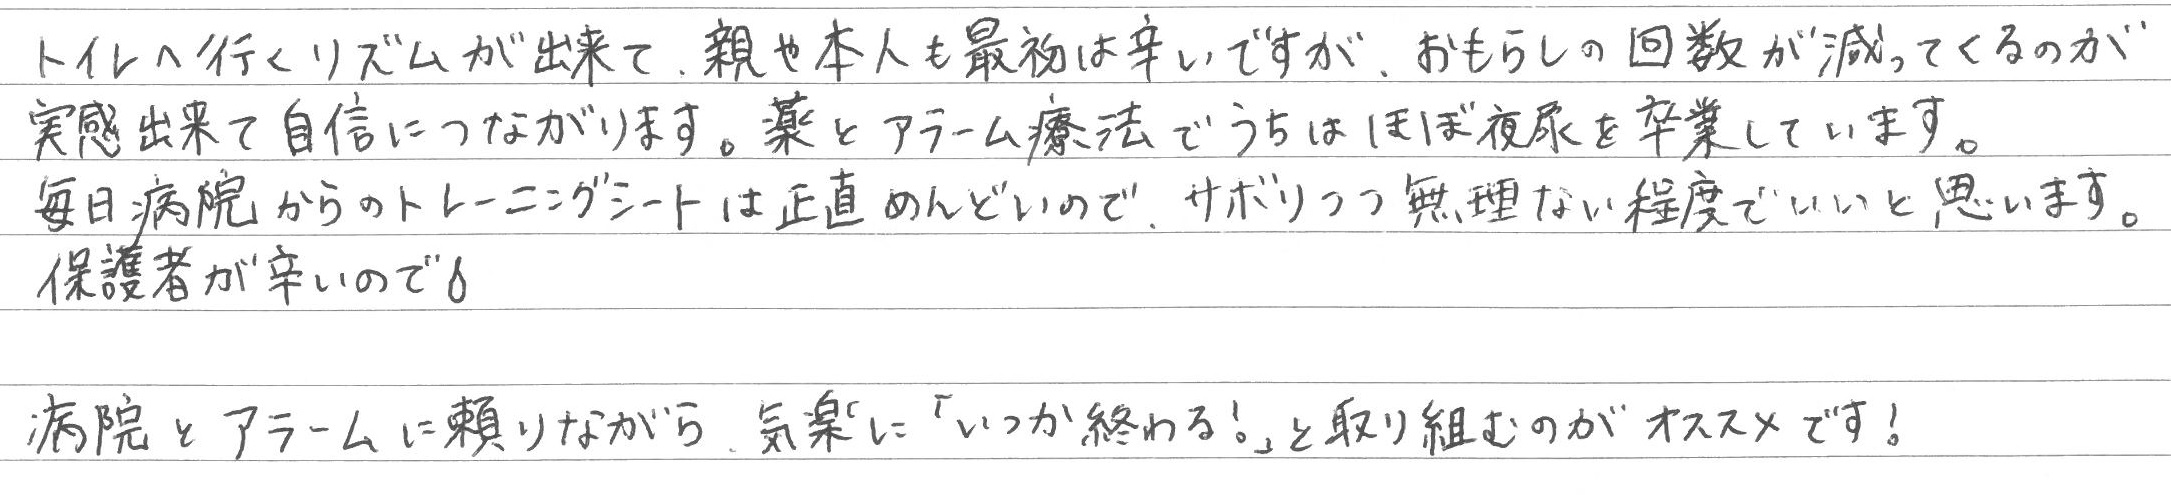 トイレへ行くリズムが出来て、親や本人も最初は辛いですが、おもらしの回数が減ってくるのが
実感出来て自信につながります。薬とアラーム療法でうちはほぼ夜尿を卒業しています。
毎日病院からのトレーニングシートは正直めんどいので、サボりつつ無理ない程度でいいと思います。
保護者が辛いので
病院とアラームに頼りながら、気楽に「いつか終わる!」と取り組むのがオススメです!